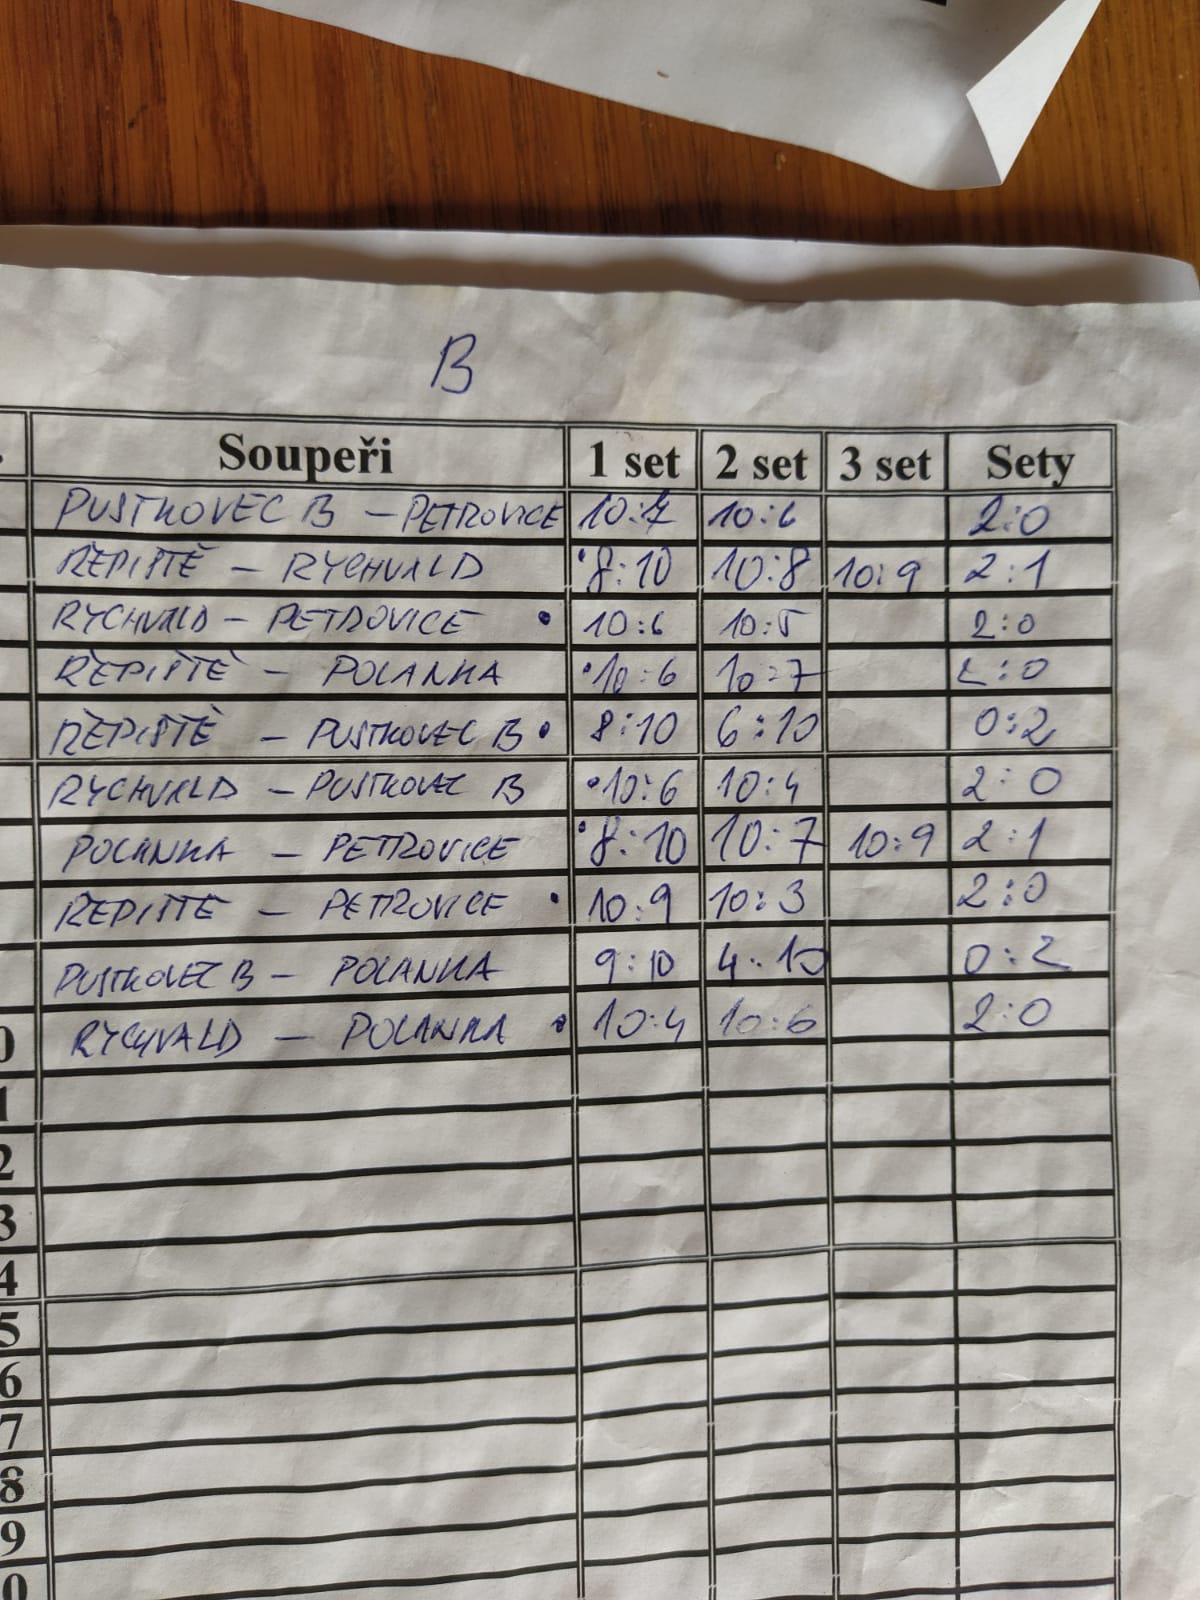 B
Soupeři 1 set 2 set 3 set Sety
PUSTKOVEC B – PETROVICE 10:7 10:6 2:0
ŘEPIŠTĚ – RYCHVALD 8:10 10:8 10:9 2:1
RYCHVALD – PETROVICE • 10:6 10:5 2:0
ŘEPIŠTĚ – POLANKA 10:6 10:7 2:0
ŘEPIŠTĚ – PUSTKOVEC B • 8:10 6:10 0:2
RYCHVALD – PUSTKOVEC B • 10:6 10:4 2:0
POLANKA – PETROVICE • 8:10 10:7 10:9 2:1
ŘEPIŠTĚ – PETROVICE • 10:9 10:3 2:0
PUSTKOVEC B – POLANKA 9:10 4:10 0:2
0 RYCHVALD – POLANKA • 10:4 10:6 2:0
1
2
3
4
5
6
7
8
9
0